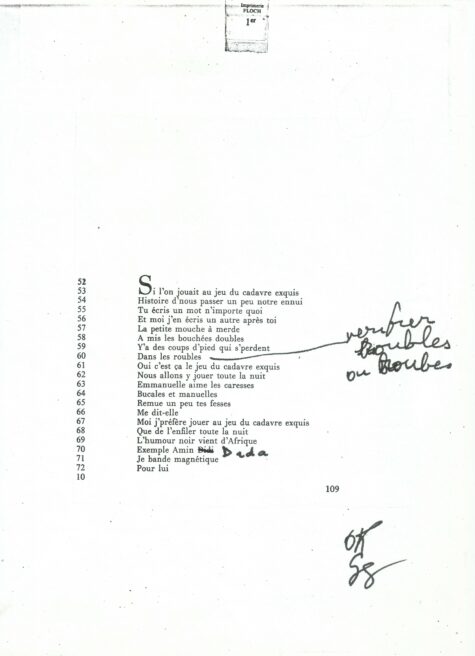 Imprimerie
FLOCH
1er
52
53 Si l'on jouait au jeu du cadavre exquis
54 Histoire d'nous passer un peu notre ennui
55 Tu écris un mot n'importe quoi
56 Et moi j'en écris un autre après toi
57 La petite mouche à merde
58 A mis les bouchées doubles
59 Y'a des coups d'pied qui s'perdent
60 Dans les roubles
verifier
Roubles
ou Roubes
61 Oui c'est ça le jeu du cadavre exquis
62 Nous allons y jouer toute la nuit
63 Emmanuelle aime les caresses
64 Bucales et manuelles
65 Remue un peu tes fesses
66 Me dit-elle
67 Moi j'préfère jouer au jeu du cadavre exquis
68 Que de l'enfiler toute la nuit
69 L'humour noir vient d'Afrique
70 Exemple Amin Didi Dada
71 Je bande magnétique
72 Pour lui
10
109
OK
Sg